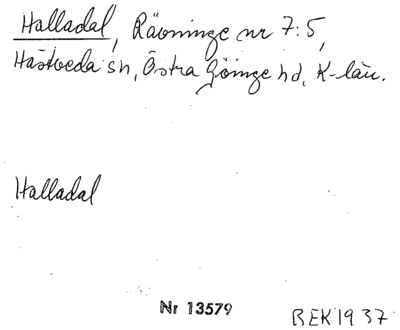 Halladal, Rävninge nr 7:5,
Hästveda sn, Östra Göinge hd, K-län.
Halladal
Nr 13579
BEK 1937